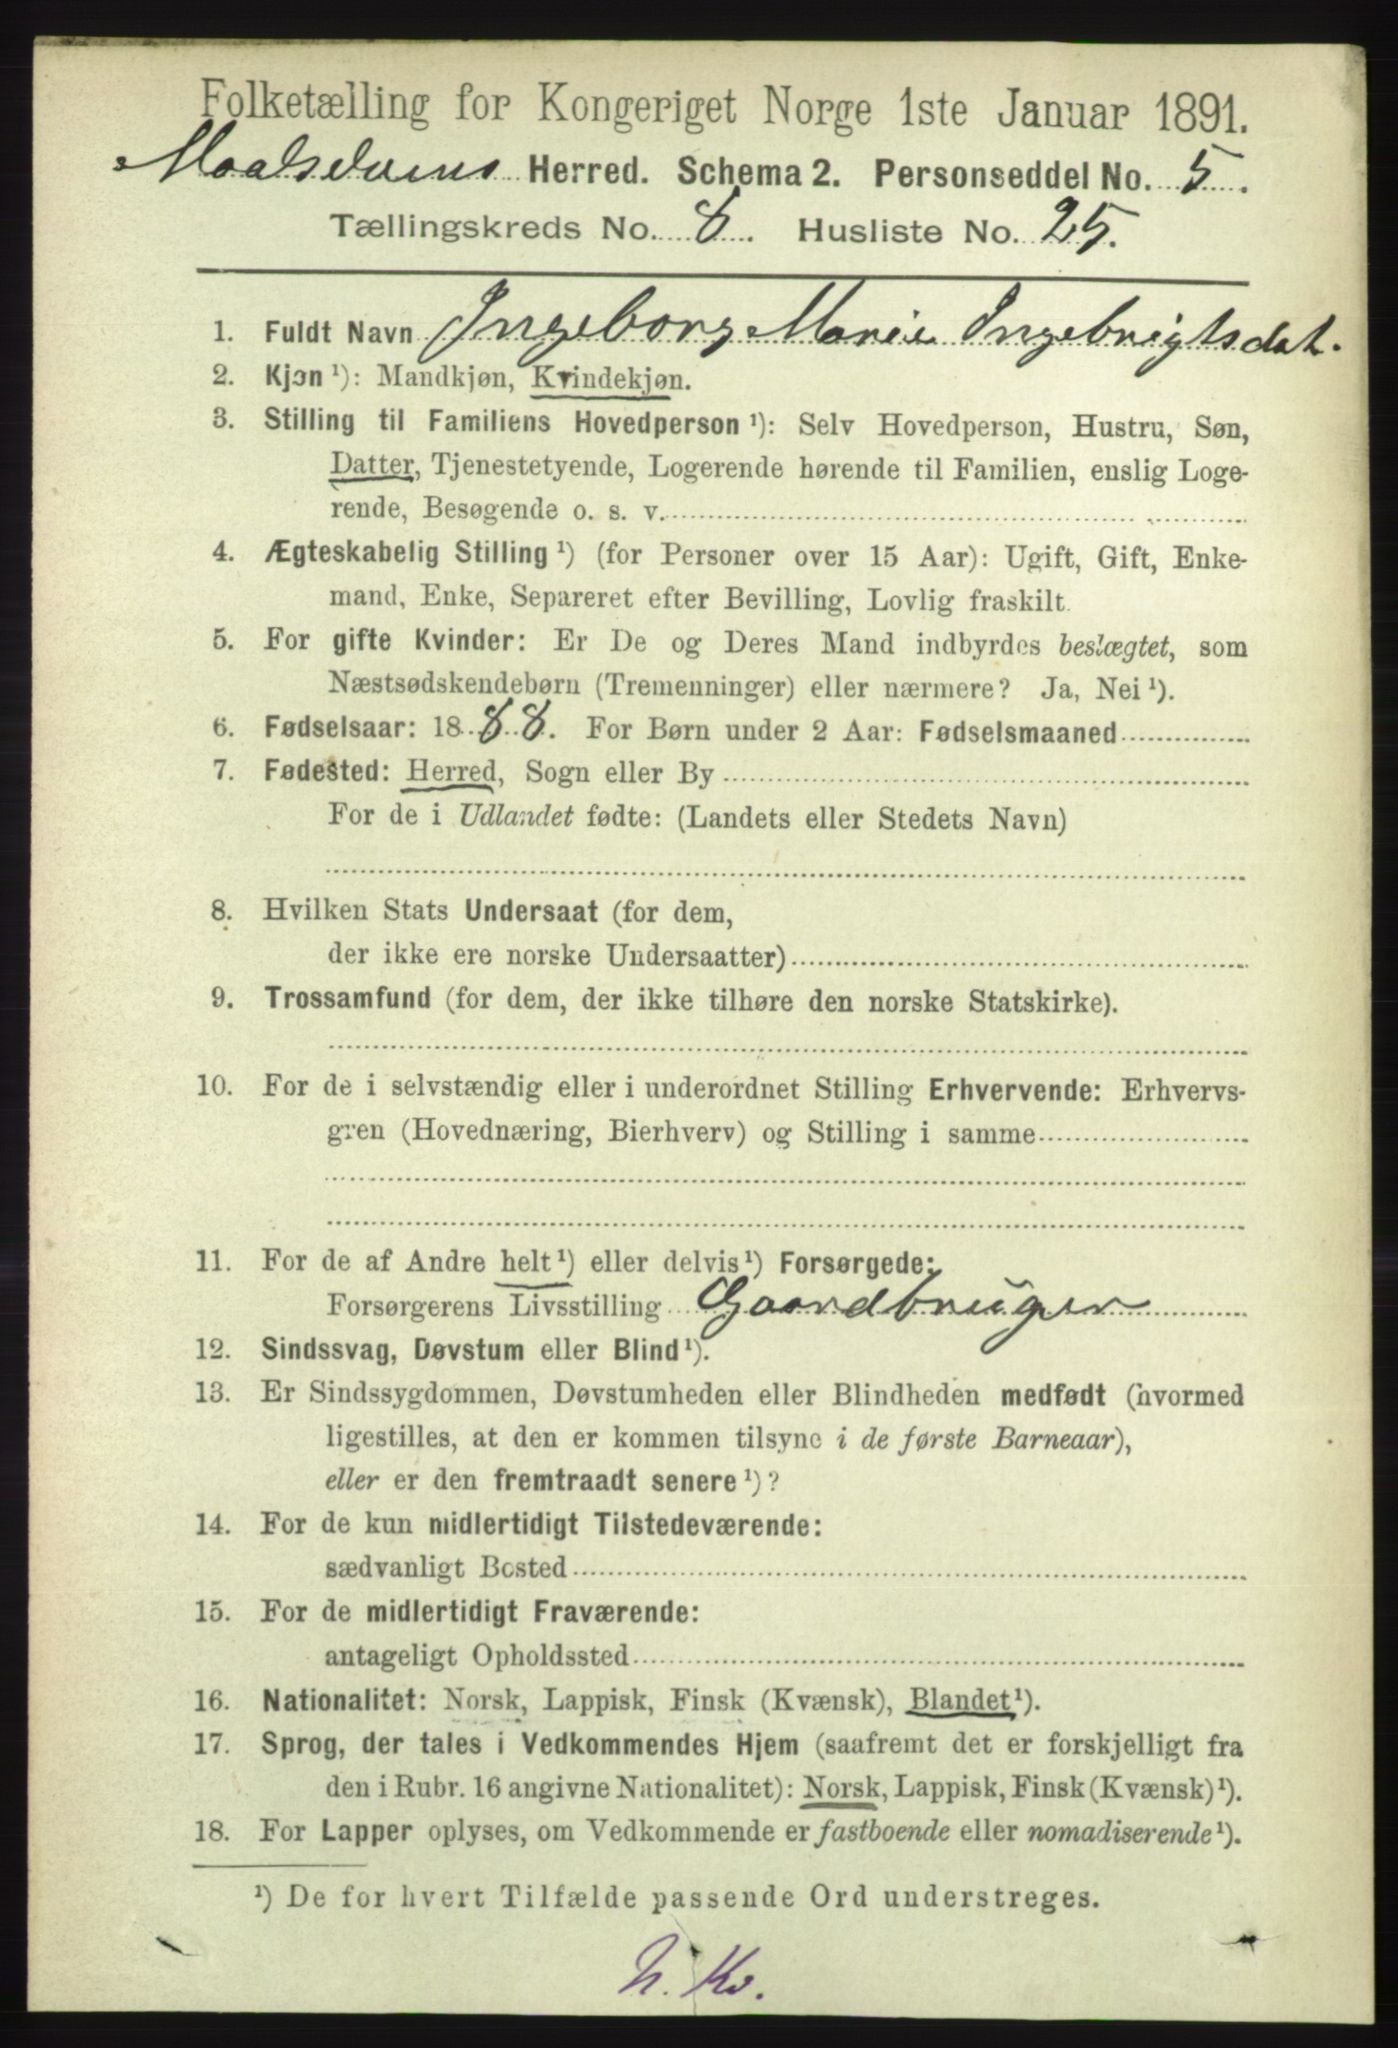 Folketælling for Kongeriget Norge 1ste Januar 1891.
Maalselvens Herred. Schema 2. Personseddel No. 5.
Tællingskreds No. 8. Husliste No. 25.
1. Fuldt Navn Ingeborg Marie Ingebrigtsdat.
2. Kjøn ¹): Mandkjøn, Kvindekjøn.
3. Stilling til Familiens Hovedperson ¹): Selv Hovedperson, Hustru, Søn,
Datter, Tjenestetyende, Logerende hørende til Familien, enslig Loge-
rende, Besøgende o. s. v.
4. Ægteskabelig Stilling ¹) (for Personer over 15 Aar): Ugift, Gift, Enke-
mand, Enke, Separeret efter Bevilling, Lovlig fraskilt.
5. For gifte Kvinder: Er De og Deres Mand indbyrdes beslægtet, som
Næstsødskendebørn (Tremenninger) eller nærmere? Ja, Nei ¹).
6. Fødselsaar: 1888. For Børn under 2 Aar: Fødselsmaaned
7. Fødested: Herred, Sogn eller By
For de i Udlandet fødte: (Landets eller Stedets Navn)
8. Hvilken Stats Undersaat (for dem,
der ikke ere norske Undersaatter)
9. Trossamfund (for dem, der ikke tilhøre den norske Statskirke).
10. For de i selvstændig eller i underordnet Stilling Erhvervende: Erhvervs-
gren (Hovednæring, Bierhverv) og Stilling i samme
11. For de af Andre helt ¹) eller delvis ¹) Forsørgede:
Forsørgerens Livsstilling Gaardbruger
12. Sindssvag, Døvstum eller Blind ¹).
13. Er Sindssygdommen, Døvstumheden eller Blindheden medfødt (hvormed
ligestilles, at den er kommen tilsyne i de første Barneaar),
eller er den fremtraadt senere ¹)?
14. For de kun midlertidigt Tilstedeværende:
sædvanligt Bosted
15. For de midlertidigt Fraværende:
antageligt Opholdssted
16. Nationalitet: Norsk, Lappisk, Finsk (Kvænsk), Blandet ¹).
17. Sprog, der tales i Vedkommendes Hjem (saafremt det er forskjelligt fra
den i Rubr. 16 angivne Nationalitet): Norsk, Lappisk, Finsk (Kvænsk) ¹).
18. For Lapper oplyses, om Vedkommende er fastboende eller nomadiserende ¹).
¹) De for hvert Tilfælde passende Ord understreges.
N. Kv.